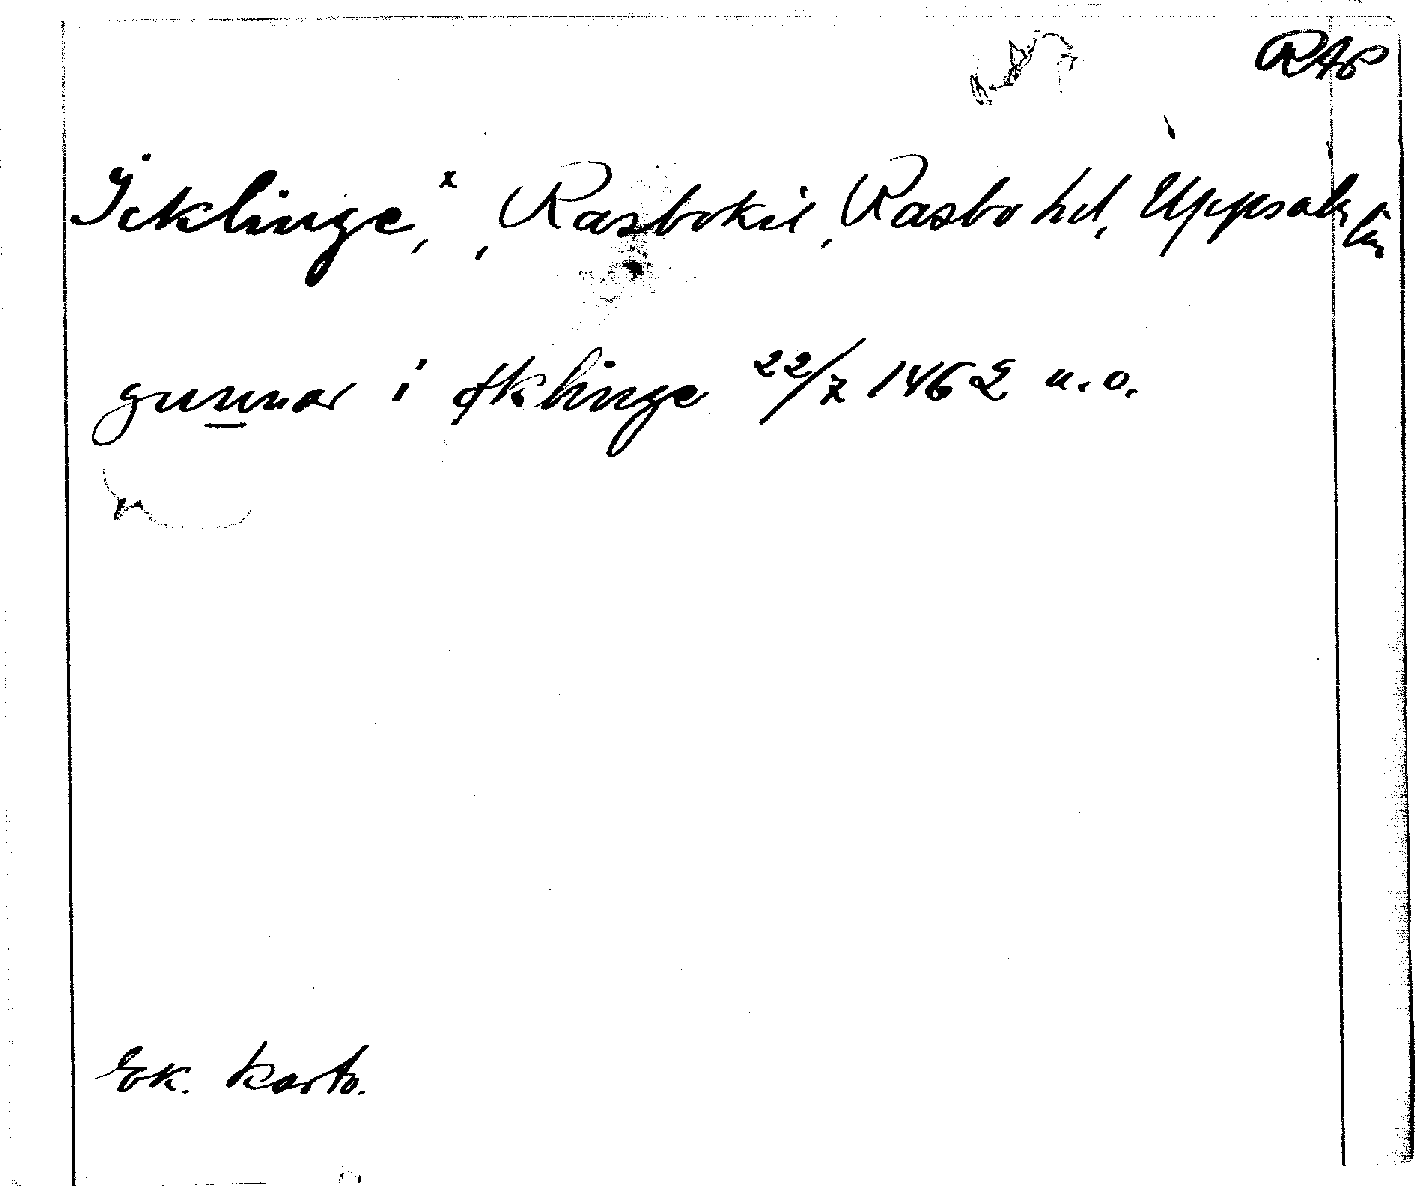 RAp
Icklinge,ˣ, Rasbokil, Rasbo hd, Uppsala län
gunnar i Iklinge 22/7 1462 u.o.
Ek. karto.